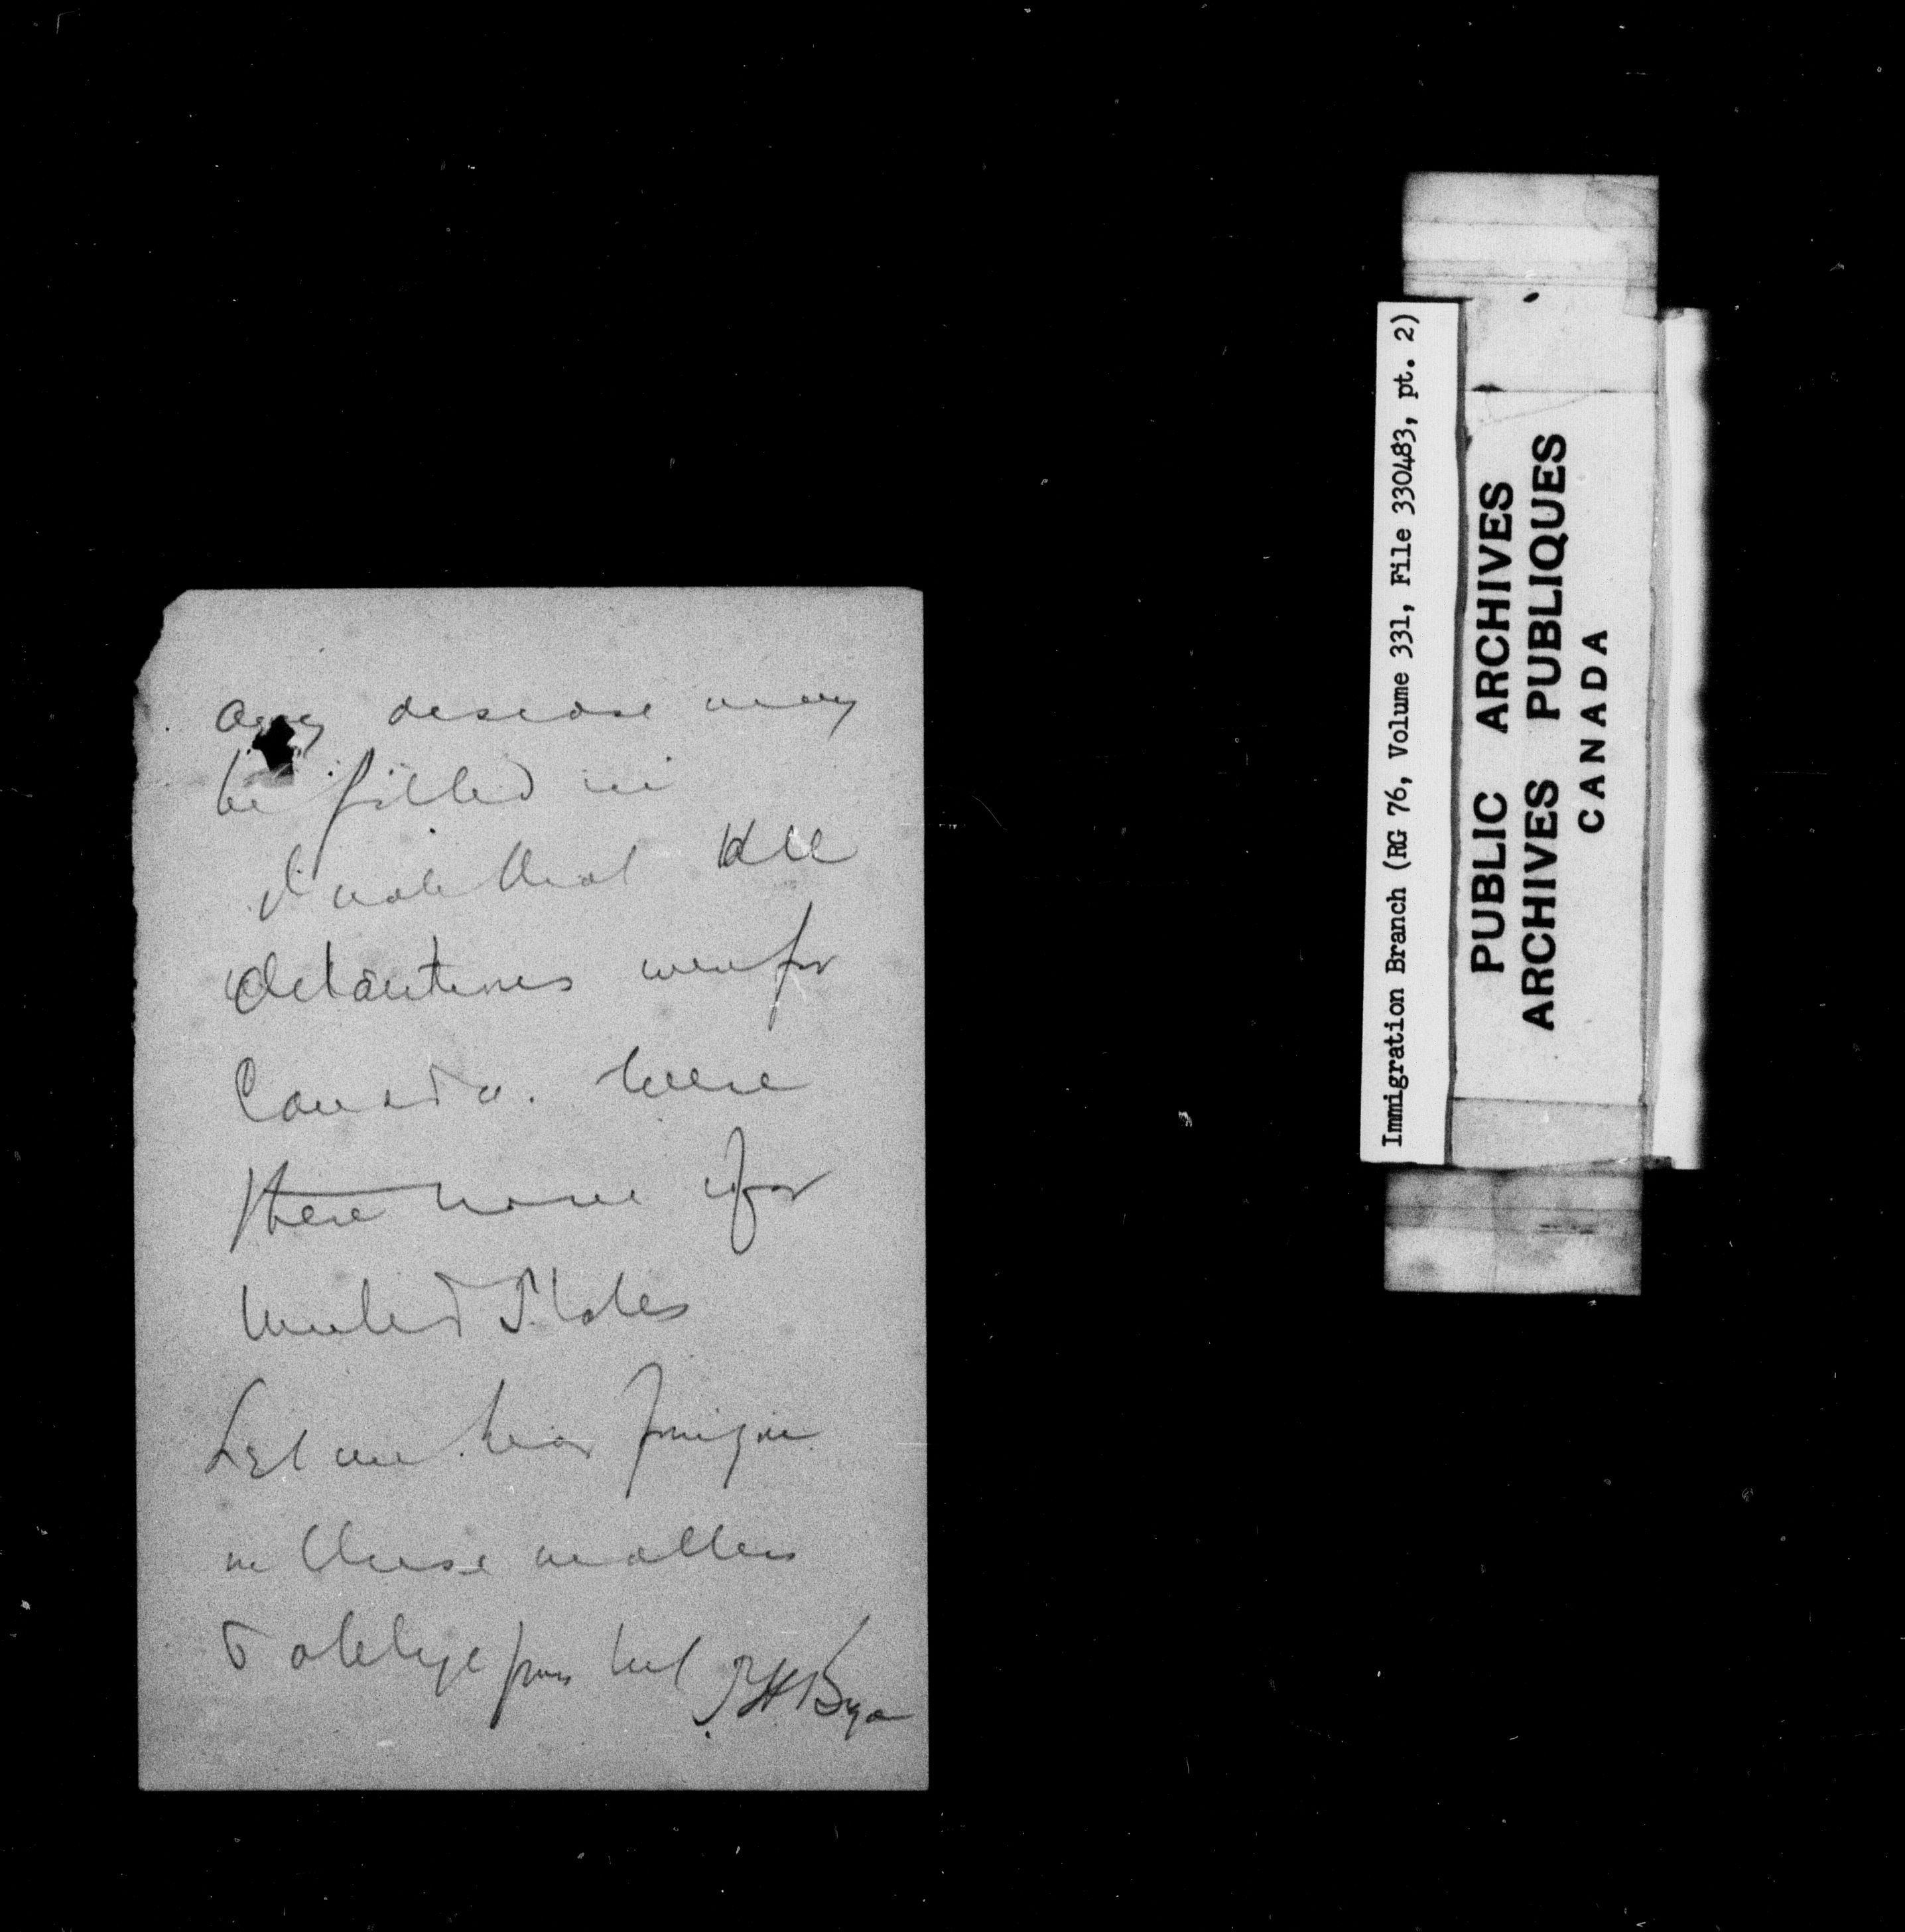 any disease may
be filled in
I note that all
detentions were for
Canada. Were
there none for
United States
Let me hear from you
in these matters
& oblige yours truly
Immigration Branch (RG 76, Volume 331, File 330483, pt. 2)
PUBLIC ARCHIVES
ARCHIVES PUBLIQUES
CANADA